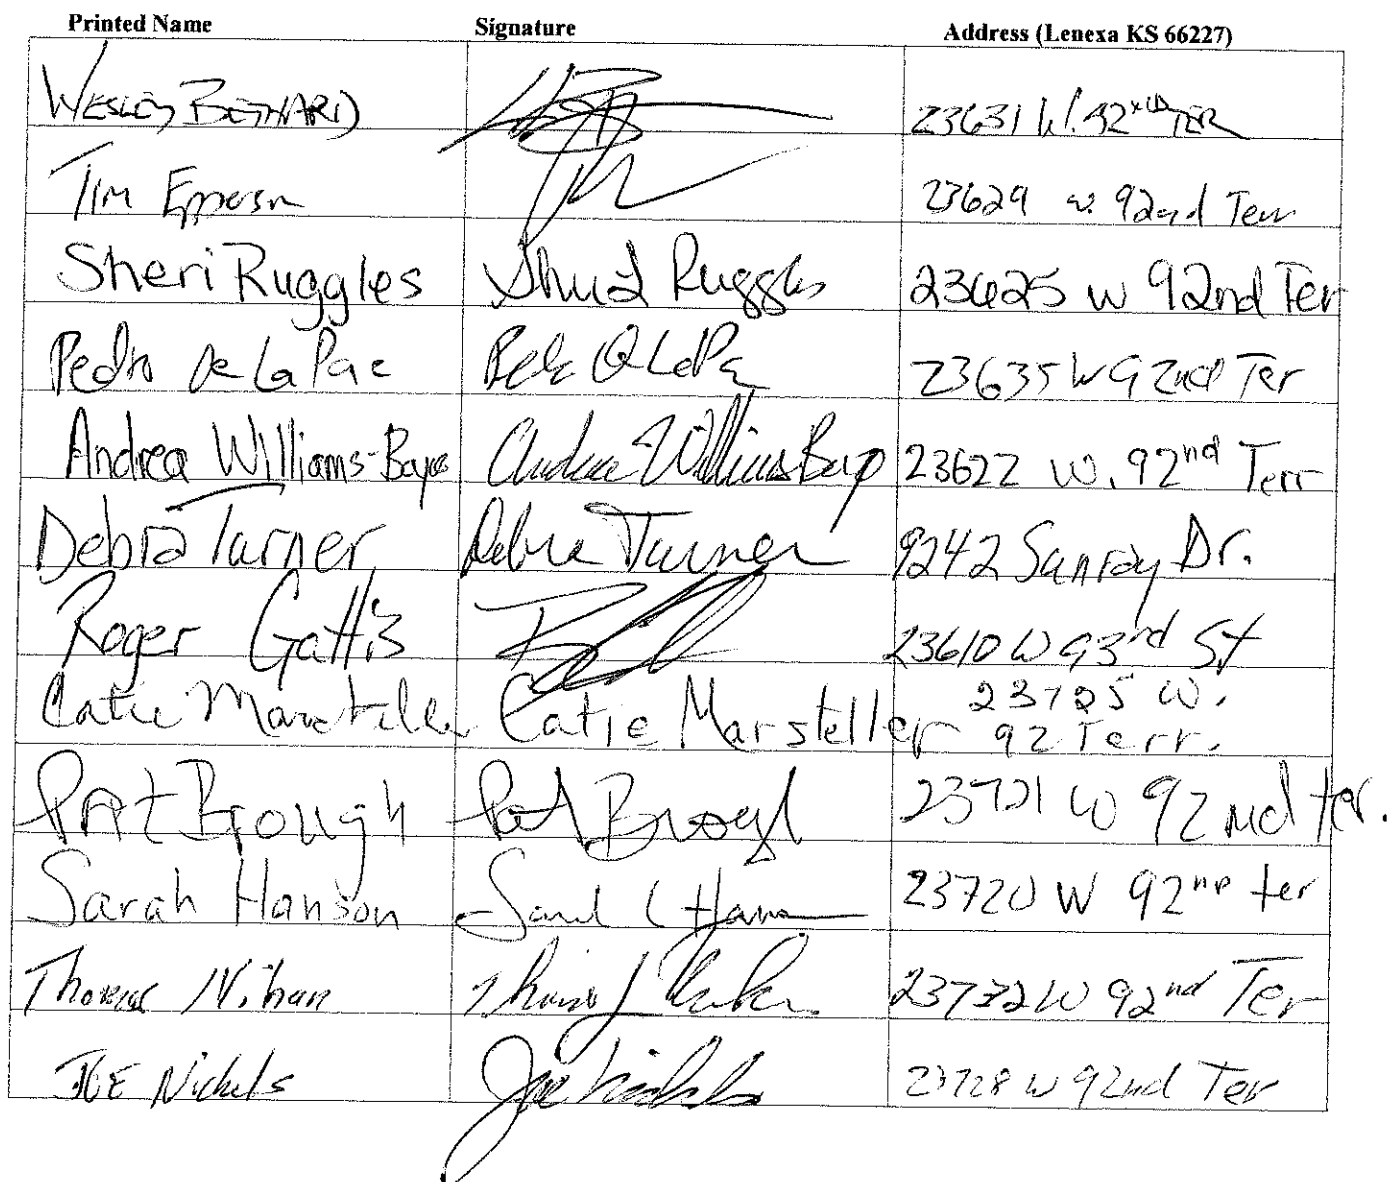 Printed Name Signature Address (Lenexa KS 66227)
WESLEY BERNARD 23631 W. 92nd TER
Tim Epperson 23629 w. 92nd Terr
Sheri Ruggles Sheri L Ruggles 23625 W 92nd Ter
Pedro de la Paz 23635 W 92nd Ter
Andrea Williams-Bayo Andrea Williams Bayo 23622 W. 92nd Terr
Debra Turner Debra Turner 9242 Sunray Dr.
Roger Gattis 23610 W 93rd St
Catie Marsteller Catie Marsteller 23725 W.
92 Terr.
PAT Brough Pat Brough 23721 W 92nd ter.
Sarah Hanson 23720 W 92nd ter
Thomas Nihan 23732 W 92nd Ter
JOE Nichels Joe Nichels 23728 W 92nd Ter